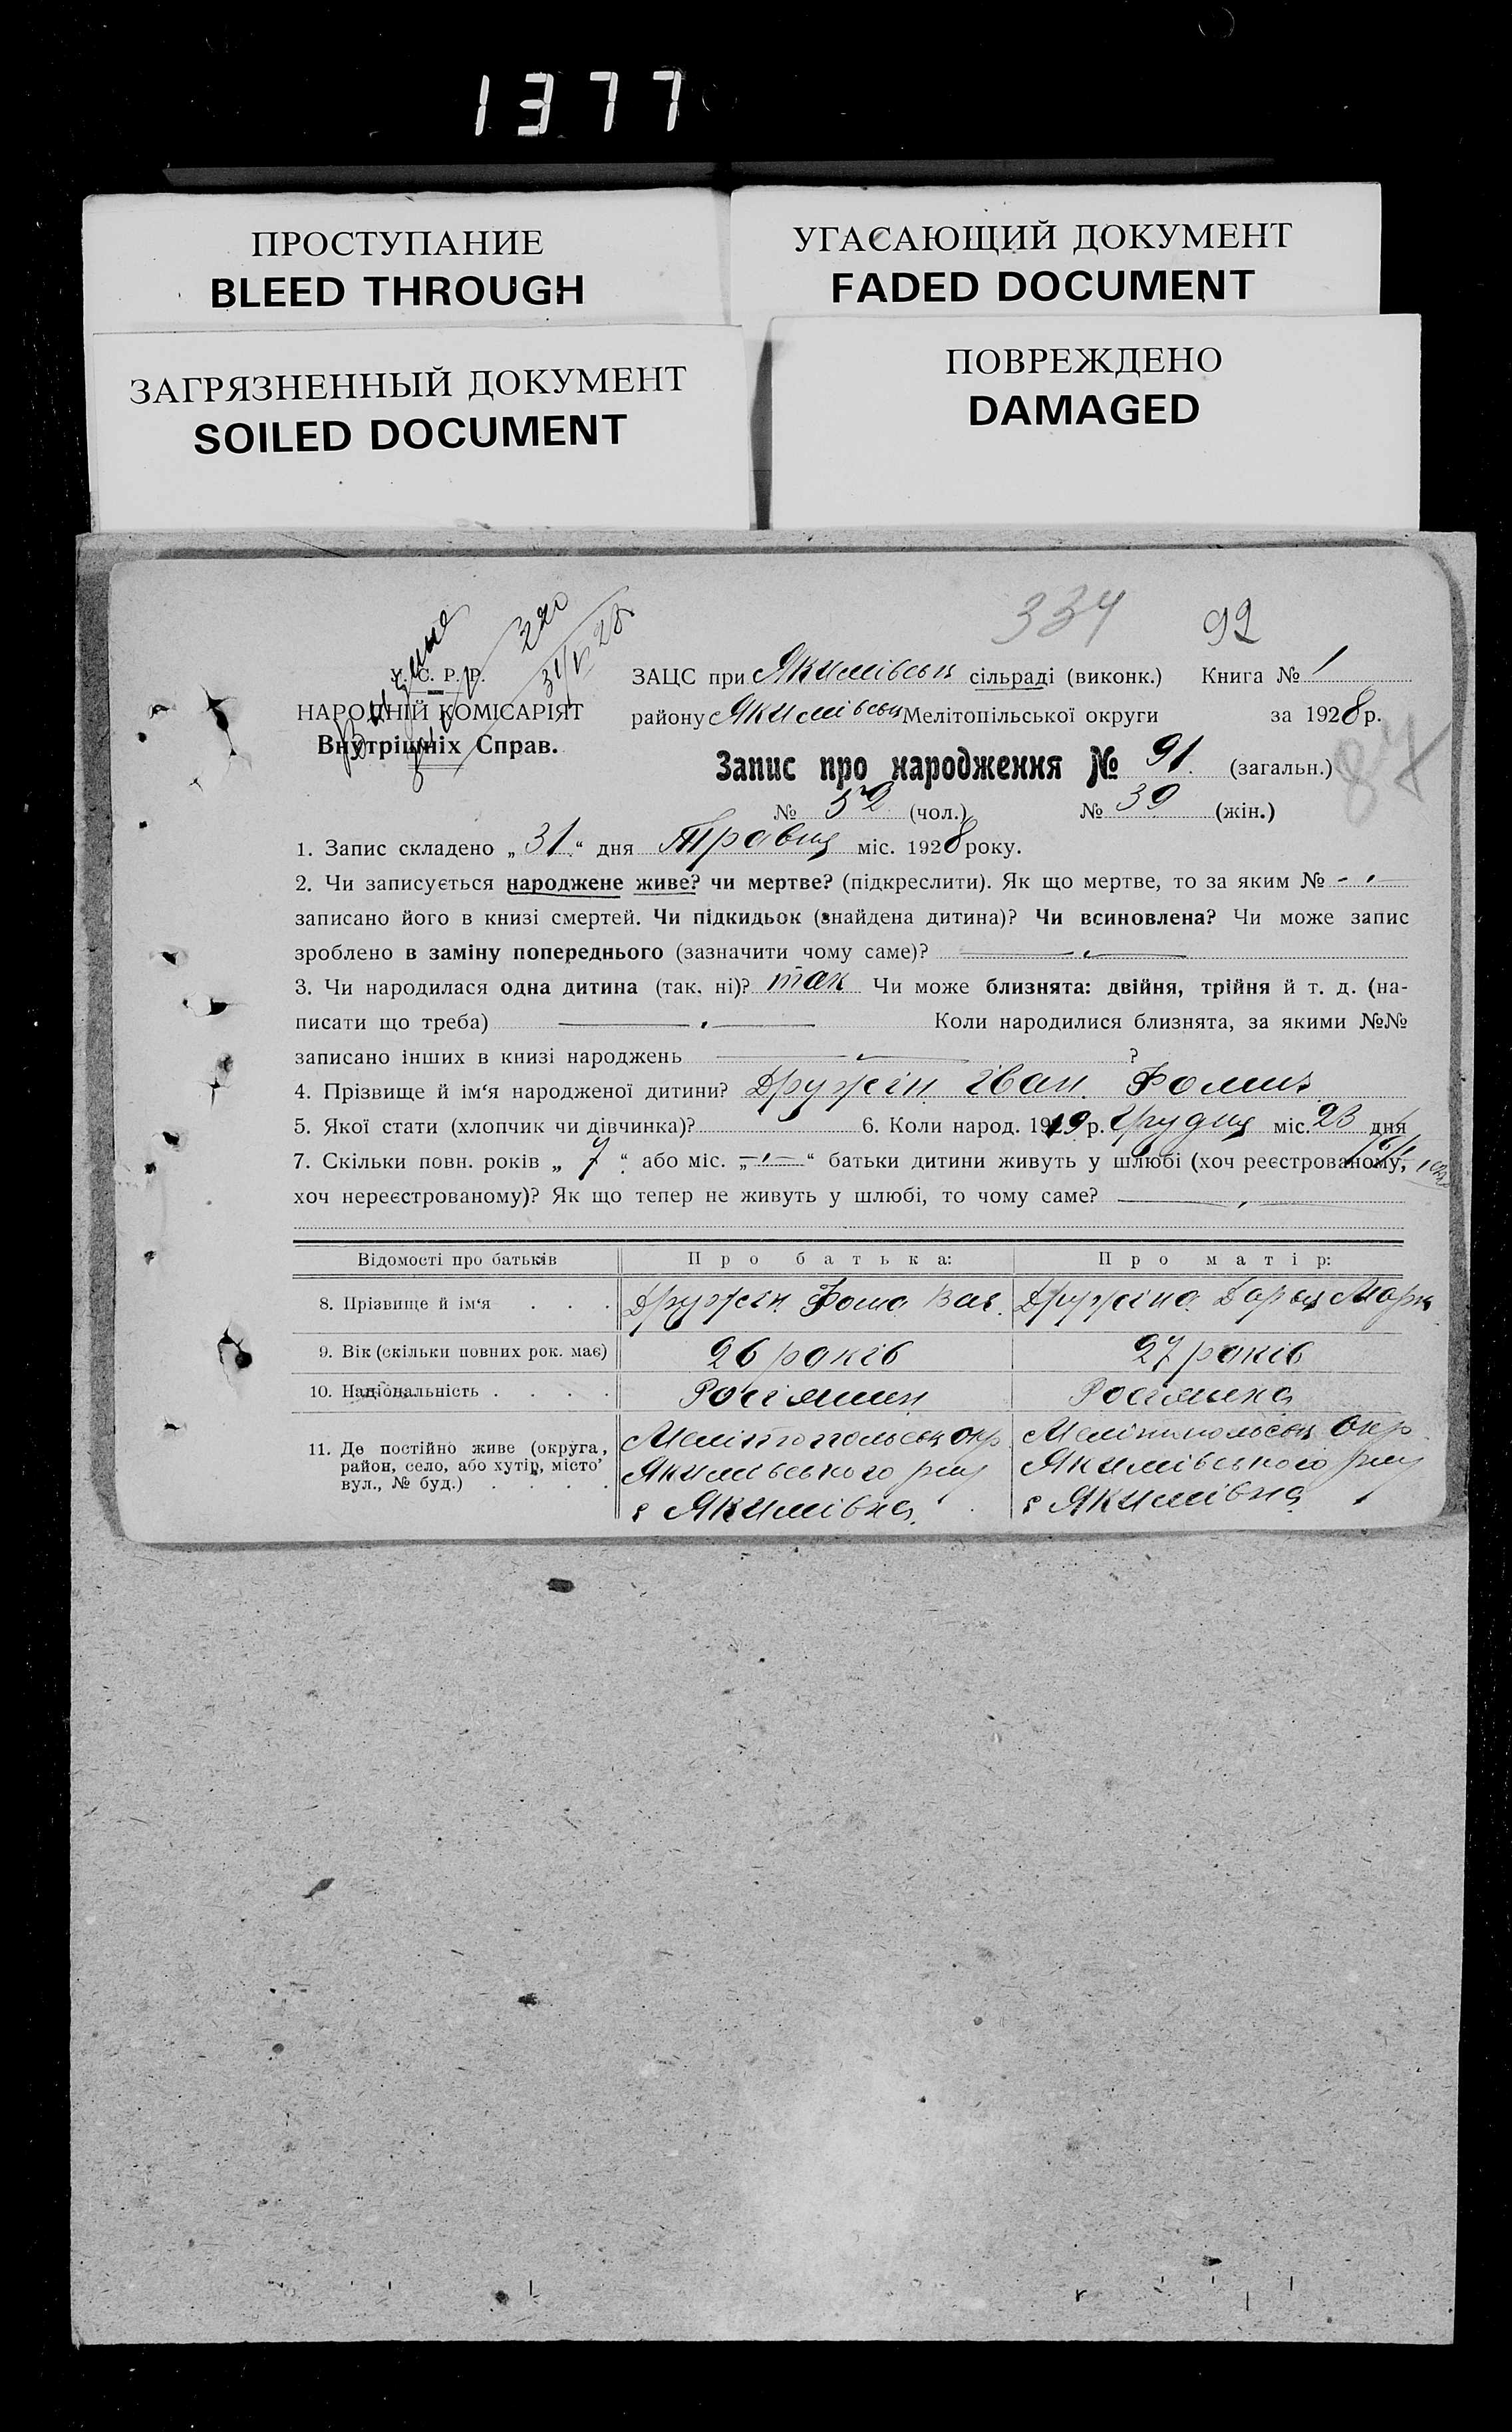 1377
ПРОСТУПАНИЕ
BLEED THROUGH
УГАСАЮЩИЙ ДОКУМЕНТ
FADED DOCUMENT
ЗАГРЯЗНЕННЫЙ ДОКУМЕНТ
SOILED DOCUMENT
ПОВРЕЖДЕНО
DAMAGED
334 92
У. С. Р. Р.
НАРОДНІЙ КОМІСАРІЯТ
Внутрішніх Справ.
220
31/V 28
ЗАЦС при Якимівськ сільраді (виконк.) Книга № 1
району Якимівськ Мелітопільської округи за 1928 р.
Запис про народження № 91 (загальн.)
87
№ 52 (чол.) № 39 (жін.)
1. Запис складено „31“ дня Травця міс. 1928 року.
2. Чи записується народжене живе? чи мертве? (підкреслити). Як що мертве, то за яким № -〃-
записано його в книзі смертей. Чи підкидьок (знайдена дитина)? Чи всиновлена? Чи може запис
зроблено в заміну попереднього (зазначити чому саме)?
3. Чи народилася одна дитина (так, ні)? так Чи може близнята: двійня, трійня й т. д. (на-
писати що треба) Коли народилися близнята, за якими №№
записано інших в книзі народжень ?
4. Прізвище й ім‘я народженої дитини? Дружін Іван Фомич
5. Якої стати (хлопчик чи дівчинка)? 6. Коли народ. 1919 р. Грудня міс. 23 дня
7. Скільки повн. років „7“ або міс. „-〃-“ батьки дитини живуть у шлюбі (хоч реєстрованому,
хоч нереєстрованому)? Як що тепер не живуть у шлюбі, то чому саме?
Відомості про батьків Про батька: Про матір:
8. Прізвище й ім‘я . . . Дружін Фома Вас. Дружіна Дарья Марк
9. Вік (скільки повних рок. має) 26 років 27 років
10. Національність . . . . Росіянин Росіянка
11. Де постійно живе (округа, Мелітопольськ окр. Мелітопольськ Окр.
район, село, або хутір, місто’ Якимівського р-ну Якимівського р-ну
вул., № буд.) . . . . с Якимівка с Якимівка